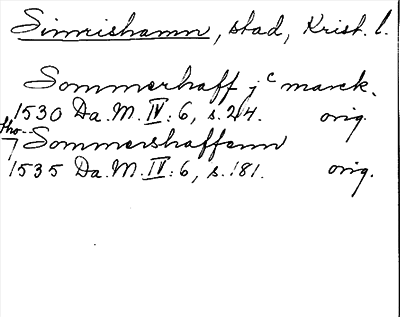 Simrishamn, stad, Krist. l.
Sommerhaff j c marck.
1530 Da. M. IV: 6, s. 24. orig.
tho
7 Sommershaffenn
1535 Da. M. IV: 6, s. 181. orig.